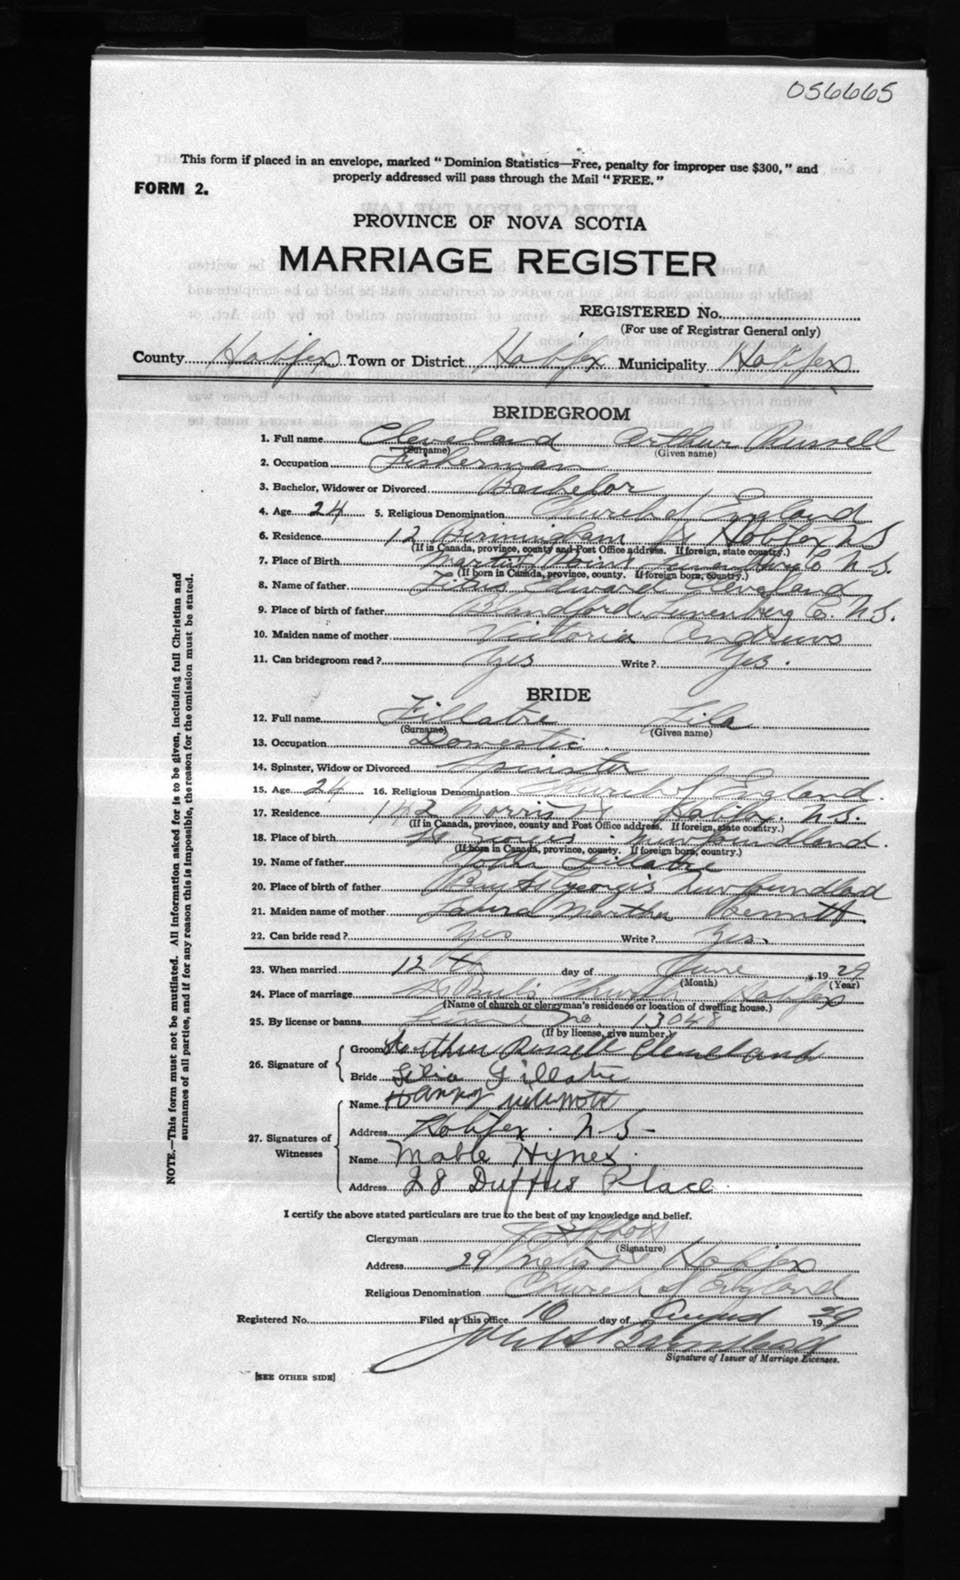 056665
This form if placed in an envelope, marked "Dominion Statistics—Free, penalty for improper use $300," and
properly addressed will pass through the Mail "FREE."
FORM 2.
PROVINCE OF NOVA SCOTIA
MARRIAGE REGISTER
REGISTERED No.
(For use of Registrar General only)
County Halifax Town or District Halifax Municipality Halifax
BRIDEGROOM
1. Full name Cleveland Arthur Russell
(Surname) (Given name)
2. Occupation Fisherman
3. Bachelor, Widower or Divorced Bachelor
4. Age 24 5. Religious Denomination Church of England
6. Residence 12 Birmingham St Halifax N S
(If in Canada, province, county and Post Office address. If foreign, state country.)
7. Place of Birth Point Lunenburg Co N.S.
(If born in Canada, province, county. If foreign born, country.)
8. Name of father Titus Edward Cleveland
9. Place of birth of father Blandford Lunenburg Co. N.S.
10. Maiden name of mother Victoria Andrews
11. Can bridegroom read? Yes Write? Yes.
BRIDE
12. Full name Fillatre Lila
(Surname) (Given name)
13. Occupation Domestic
14. Spinster, Widow or Divorced Spinster
15. Age 24 16. Religious Denomination Church of England.
17. Residence Morris St Halifax. N.S.
(If in Canada, province, county and Post Office address. If foreign, state country.)
18. Place of birth St Georges Newfoundland.
(If born in Canada, province, county. If foreign born, country.)
19. Name of father John Fillatre
20. Place of birth of father Bay St George's Newfoundland
21. Maiden name of mother Laura Martha Bennett
22. Can bride read? Yes Write? Yes.
23. When married 12th day of June 1929
(Month) (Year)
24. Place of marriage St Paul's Church Halifax
(Name of church or clergyman's residence or location of dwelling house.)
25. By license or banns License No. 13048
(If by license, give number.)
26. Signature of Groom Arthur Russell Cleveland
Bride Lilia Fillatre
27. Signatures of Witnesses Name Harry
Address Halifax. N S
Name Mable Hynes.
Address 28 Duffus Place.
I certify the above stated particulars are true to the best of my knowledge and belief.
Clergyman
(Signature)
Address 29 Halifax
Religious Denomination Church of England
Registered No. Filed at this office 10 day of August 1929
Signature of Issuer of Marriage Licenses.
[SEE OTHER SIDE]
NOTE.—This form must not be mutilated. All information asked for is to be given, including full Christian and
surnames of all parties, and if for any reason this is impossible, the reason for the omission must be stated.